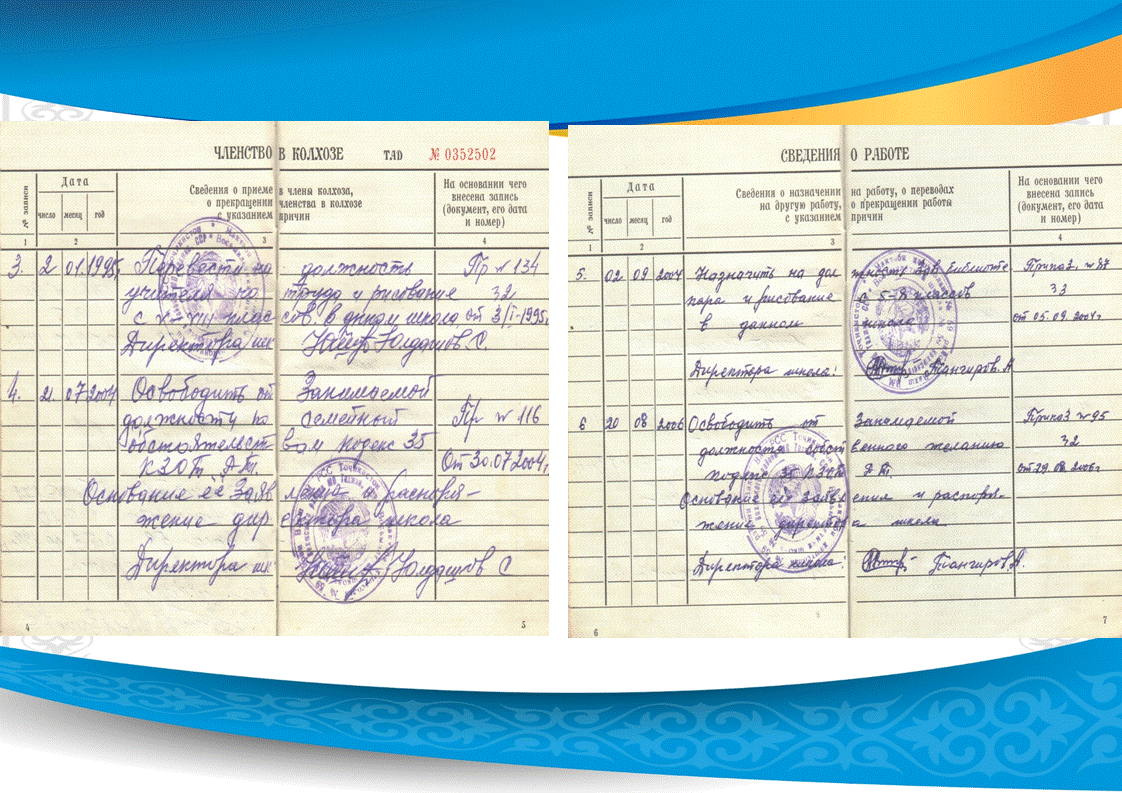 ЧЛЕНСТВО В КОЛХОЗЕ TAD № 0352502
№ записи
Дата
число месяц год
Сведения о приеме в члены колхоза,
о прекращении членства в колхозе
с указанием причин
На основании чего
внесена запись
(документ, его дата
и номер)
1 2 3 4
3. 2 01 1995г. Перевести на должность Пр № 134
учителя на труда и рисование 32
с V-VIII классов в дном школа от 3/I-1995г.
Директора шк Юлдашов С.
4. 21 07 2004 Освободить от Занимаемой
должность по семейный Пр № 116
обстоятельствам кодекс 35
КЗОТ. Р.Т. От 30.07.2004г.
Основание её Заявление и распоря-
жение директора школа
Директора шк Юлдашов С
4 5
СВЕДЕНИЯ О РАБОТЕ
№ записи
Дата
число месяц год
Сведения о назначении на работу, о переводах
на другую работу, о прекращении работы
с указанием причин
На основании чего
внесена запись
(документ, его дата
и номер)
1 2 3 4
5. 02 09 2004 Назначить на должность Зав. библиоте Приказ № 87
и рисование с 5-8 классов 33
в данном школа от 05.09.2004г
Директора школа: Тангиров. А
6 20 08 2006 Освободить от Занимаемой Приказ № 95
должность собственного желанию 32
кодекс 35 КЗОТ Р.Т. от 29.08.2006г
Основание её заявления и распоря-
жение директора школа
Директора школа: Тангиров А.
6 7